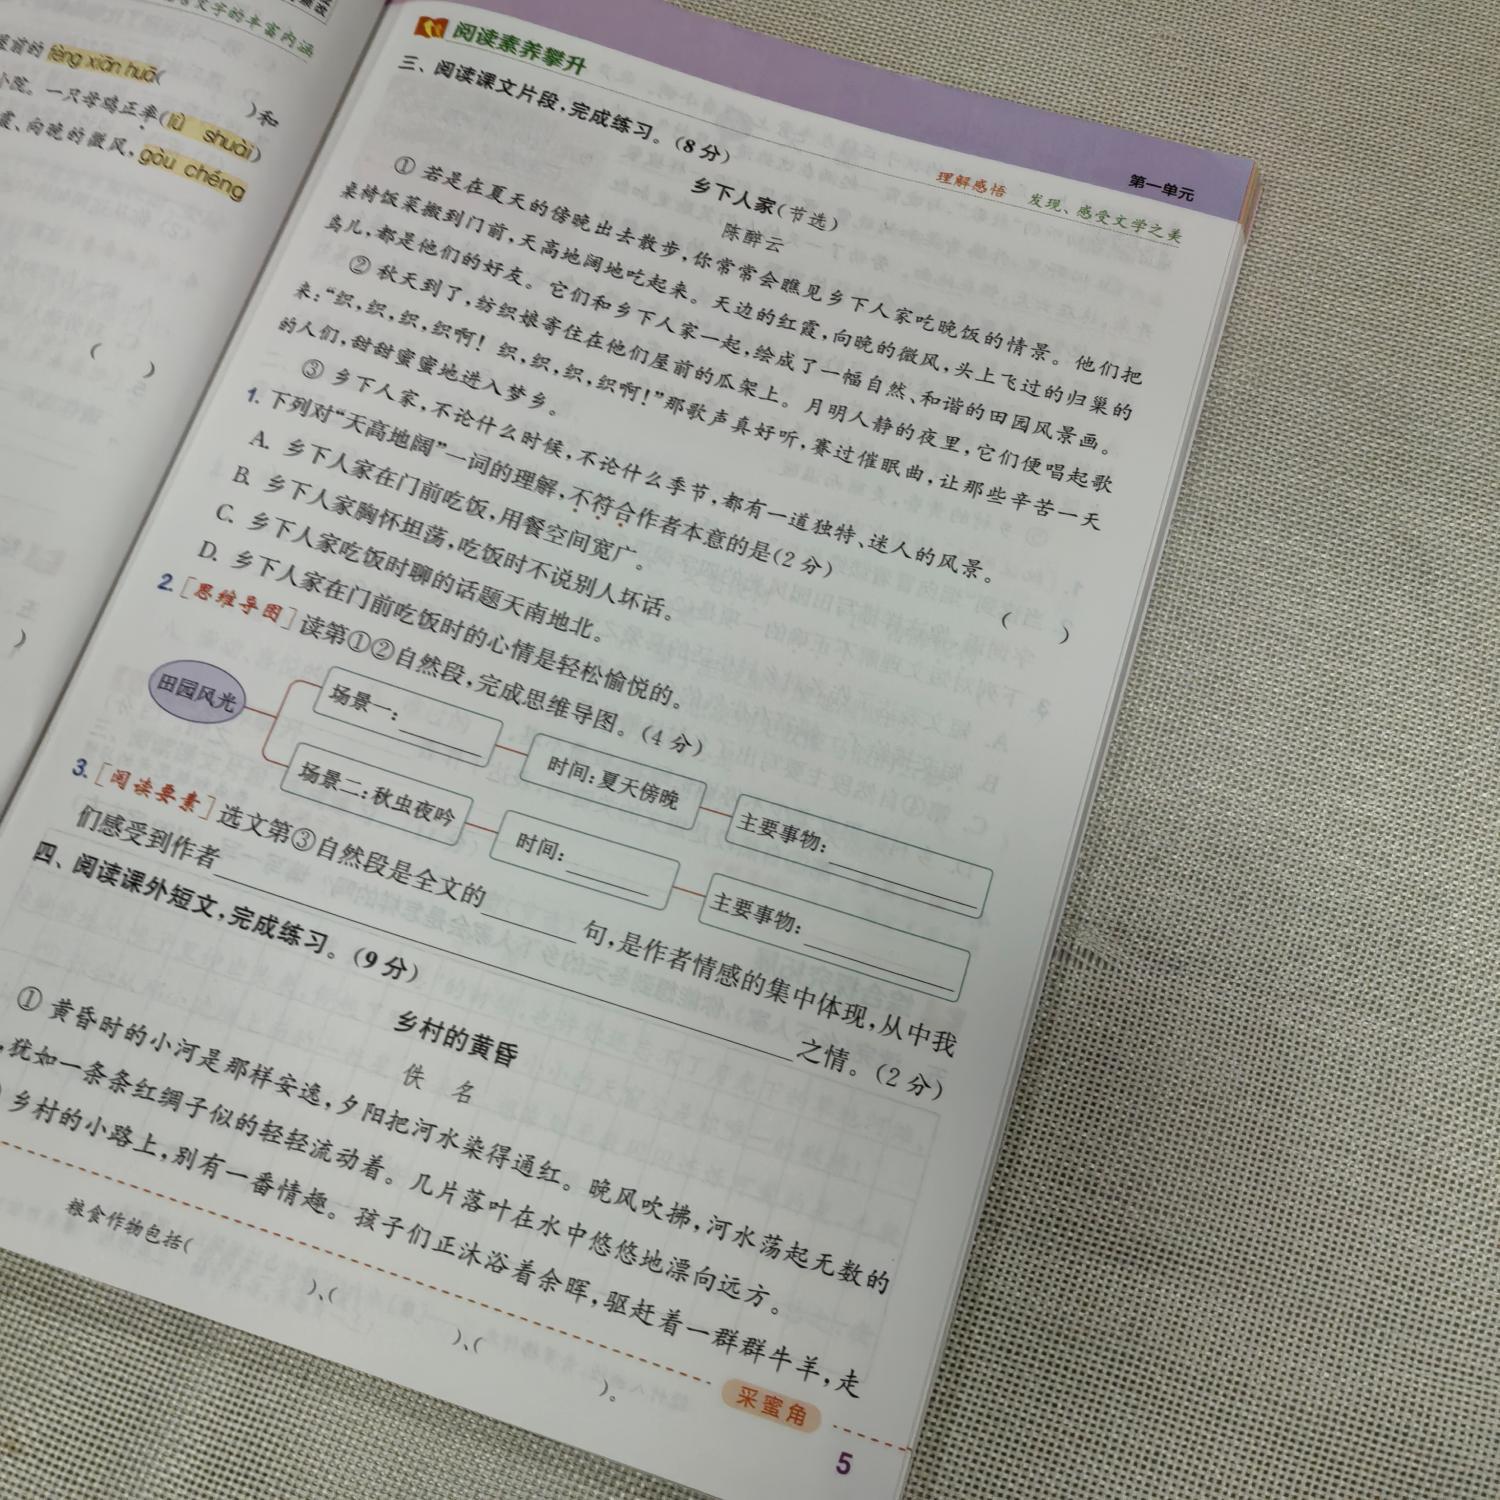 文字的丰富内涵
屋前的fèng xiān huā(
)和
小院。一只母鸡正率(lǜ shuài)
霞、向晚的微风,gòu chéng
( )
)
阅读素养攀升
第一单元
三、阅读课文片段,完成练习。(8分)
理解感悟 发现、感受文学之美
乡下人家(节选)
陈醉云
① 若是在夏天的傍晚出去散步,你常常会瞧见乡下人家吃晚饭的情景。他们把
桌椅饭菜搬到门前,天高地阔地吃起来。天边的红霞,向晚的微风,头上飞过的归巢的
鸟儿,都是他们的好友。它们和乡下人家一起,绘成了一幅自然、和谐的田园风景画。
② 秋天到了,纺织娘寄住在他们屋前的瓜架上。月明人静的夜里,它们便唱起歌
来:“织,织,织,织啊!织,织,织,织啊!”那歌声真好听,赛过催眠曲,让那些辛苦一天
的人们,甜甜蜜蜜地进入梦乡。
③ 乡下人家,不论什么时候,不论什么季节,都有一道独特、迷人的风景。
1. 下列对“天高地阔”一词的理解,不符合作者本意的是(2分) ( )
A. 乡下人家在门前吃饭,用餐空间宽广。
B. 乡下人家胸怀坦荡,吃饭时不说别人坏话。
C. 乡下人家吃饭时聊的话题天南地北。
D. 乡下人家在门前吃饭时的心情是轻松愉悦的。
2. [思维导图]读第①②自然段,完成思维导图。(4分)
田园风光
场景一:
时间:夏天傍晚
主要事物:
场景二:秋虫夜吟
时间:
主要事物:
3. [阅读要素]选文第③自然段是全文的 句,是作者情感的集中体现,从中我
们感受到作者 之情。(2分)
四、阅读课外短文,完成练习。(9分)
乡村的黄昏
佚 名
① 黄昏时的小河是那样安逸,夕阳把河水染得通红。晚风吹拂,河水荡起无数的
,犹如一条条红绸子似的轻轻流动着。几片落叶在水中悠悠地漂向远方。
乡村的小路上,别有一番情趣。孩子们正沐浴着余晖,驱赶着一群群牛羊,走
采蜜角
粮食作物包括( )、( )、( )。
5